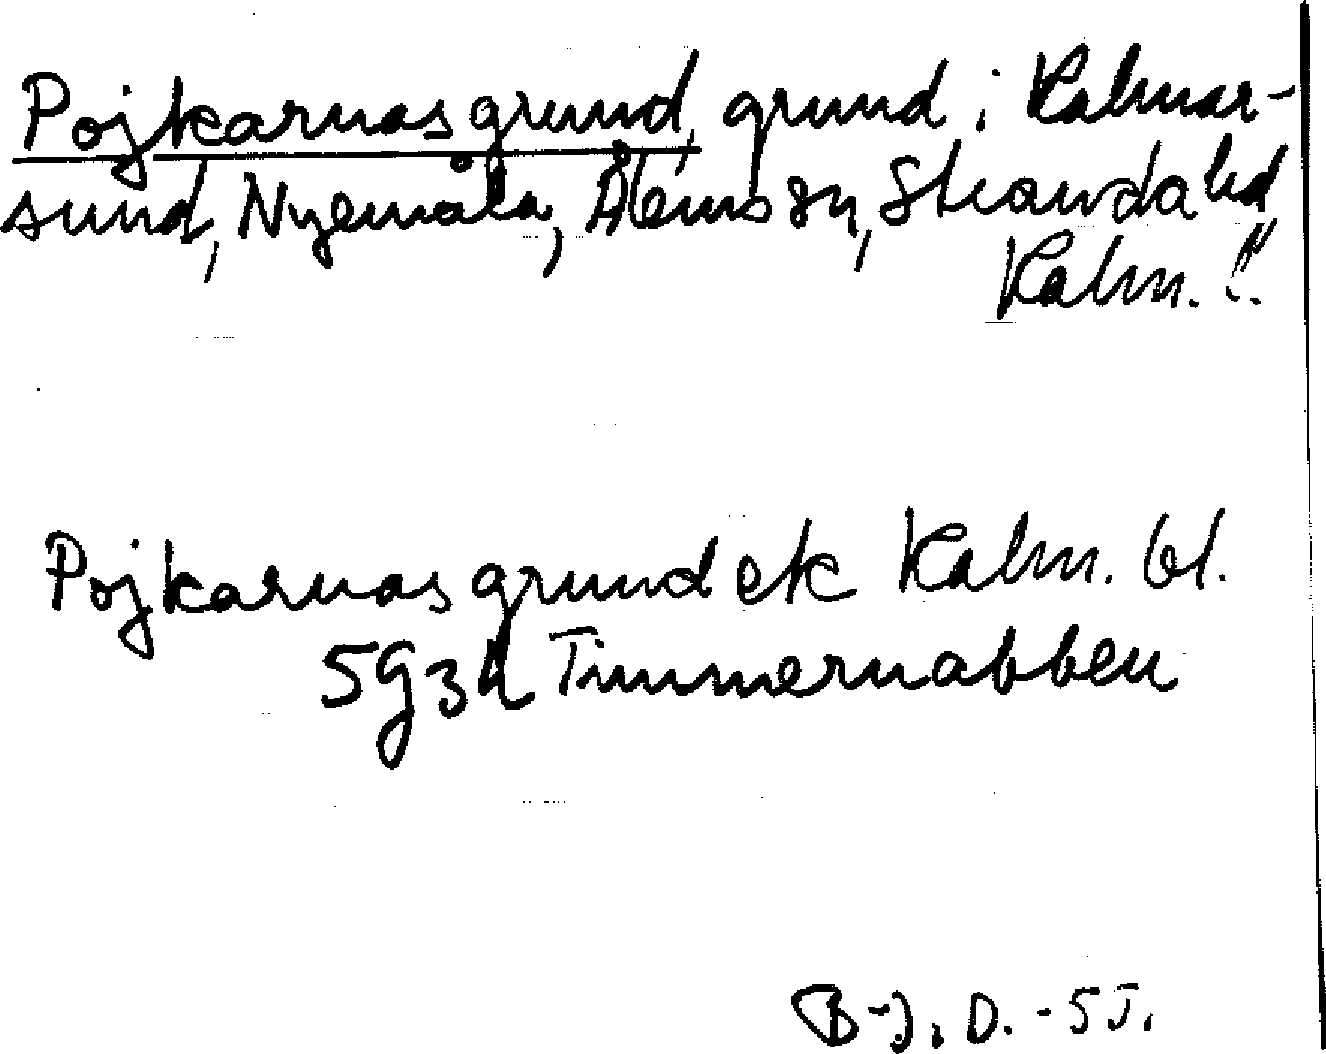 Pojkarnas grund, grund i Kalmar-
sund, Nyemåla, Ålems sn, Stranda hd,
Kalm. l.
Pojkarnas grund ek Kalm. bl.
5g3h Timmernabben
B-J. D. -55.